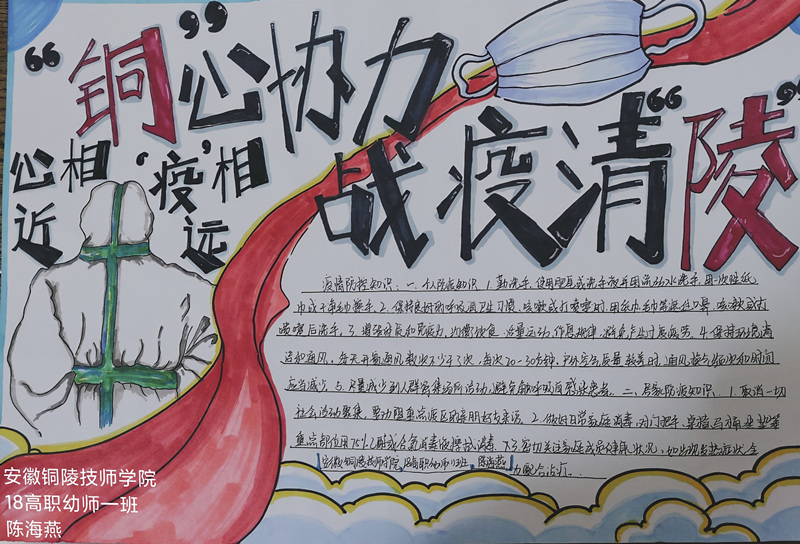 “铜”心协力
战疫清“陵”
心相
近
‘疫’相
远
疫情防控知识：一、个人防疫知识 1.勤洗手，使用肥皂或洗手液并用流动水洗手，用一次性纸
巾或干净毛巾擦手。2.保持良好的呼吸道卫生习惯，咳嗽或打喷嚏时，用纸巾、毛巾等遮住口鼻，咳嗽或打
喷嚏后洗手。3.增强体质和免疫力，均衡饮食、适量运动、作息规律，避免产生过度疲劳。4.保持环境清
洁和通风，每天开窗通风数次不少于3次，每次20-30分钟，户外空气质量较差时，通风换气频次和时间
应当减少。5.尽量减少到人群密集场所活动，避免接触呼吸道感染患者。二、居家防疫知识：1.取消一切
社会活动聚集，劝阻重点疫区的亲朋好友来访。2.做好日常家庭消毒，对门把手、桌椅、马桶坐垫等
重点部位用75%乙醇或含氯消毒液擦拭消毒。3.密切关注家庭成员健康状况，如出现发热症状会
安徽铜陵技师学院 18高职幼师1班 陈海燕
安徽铜陵技师学院
18高职幼师一班
陈海燕